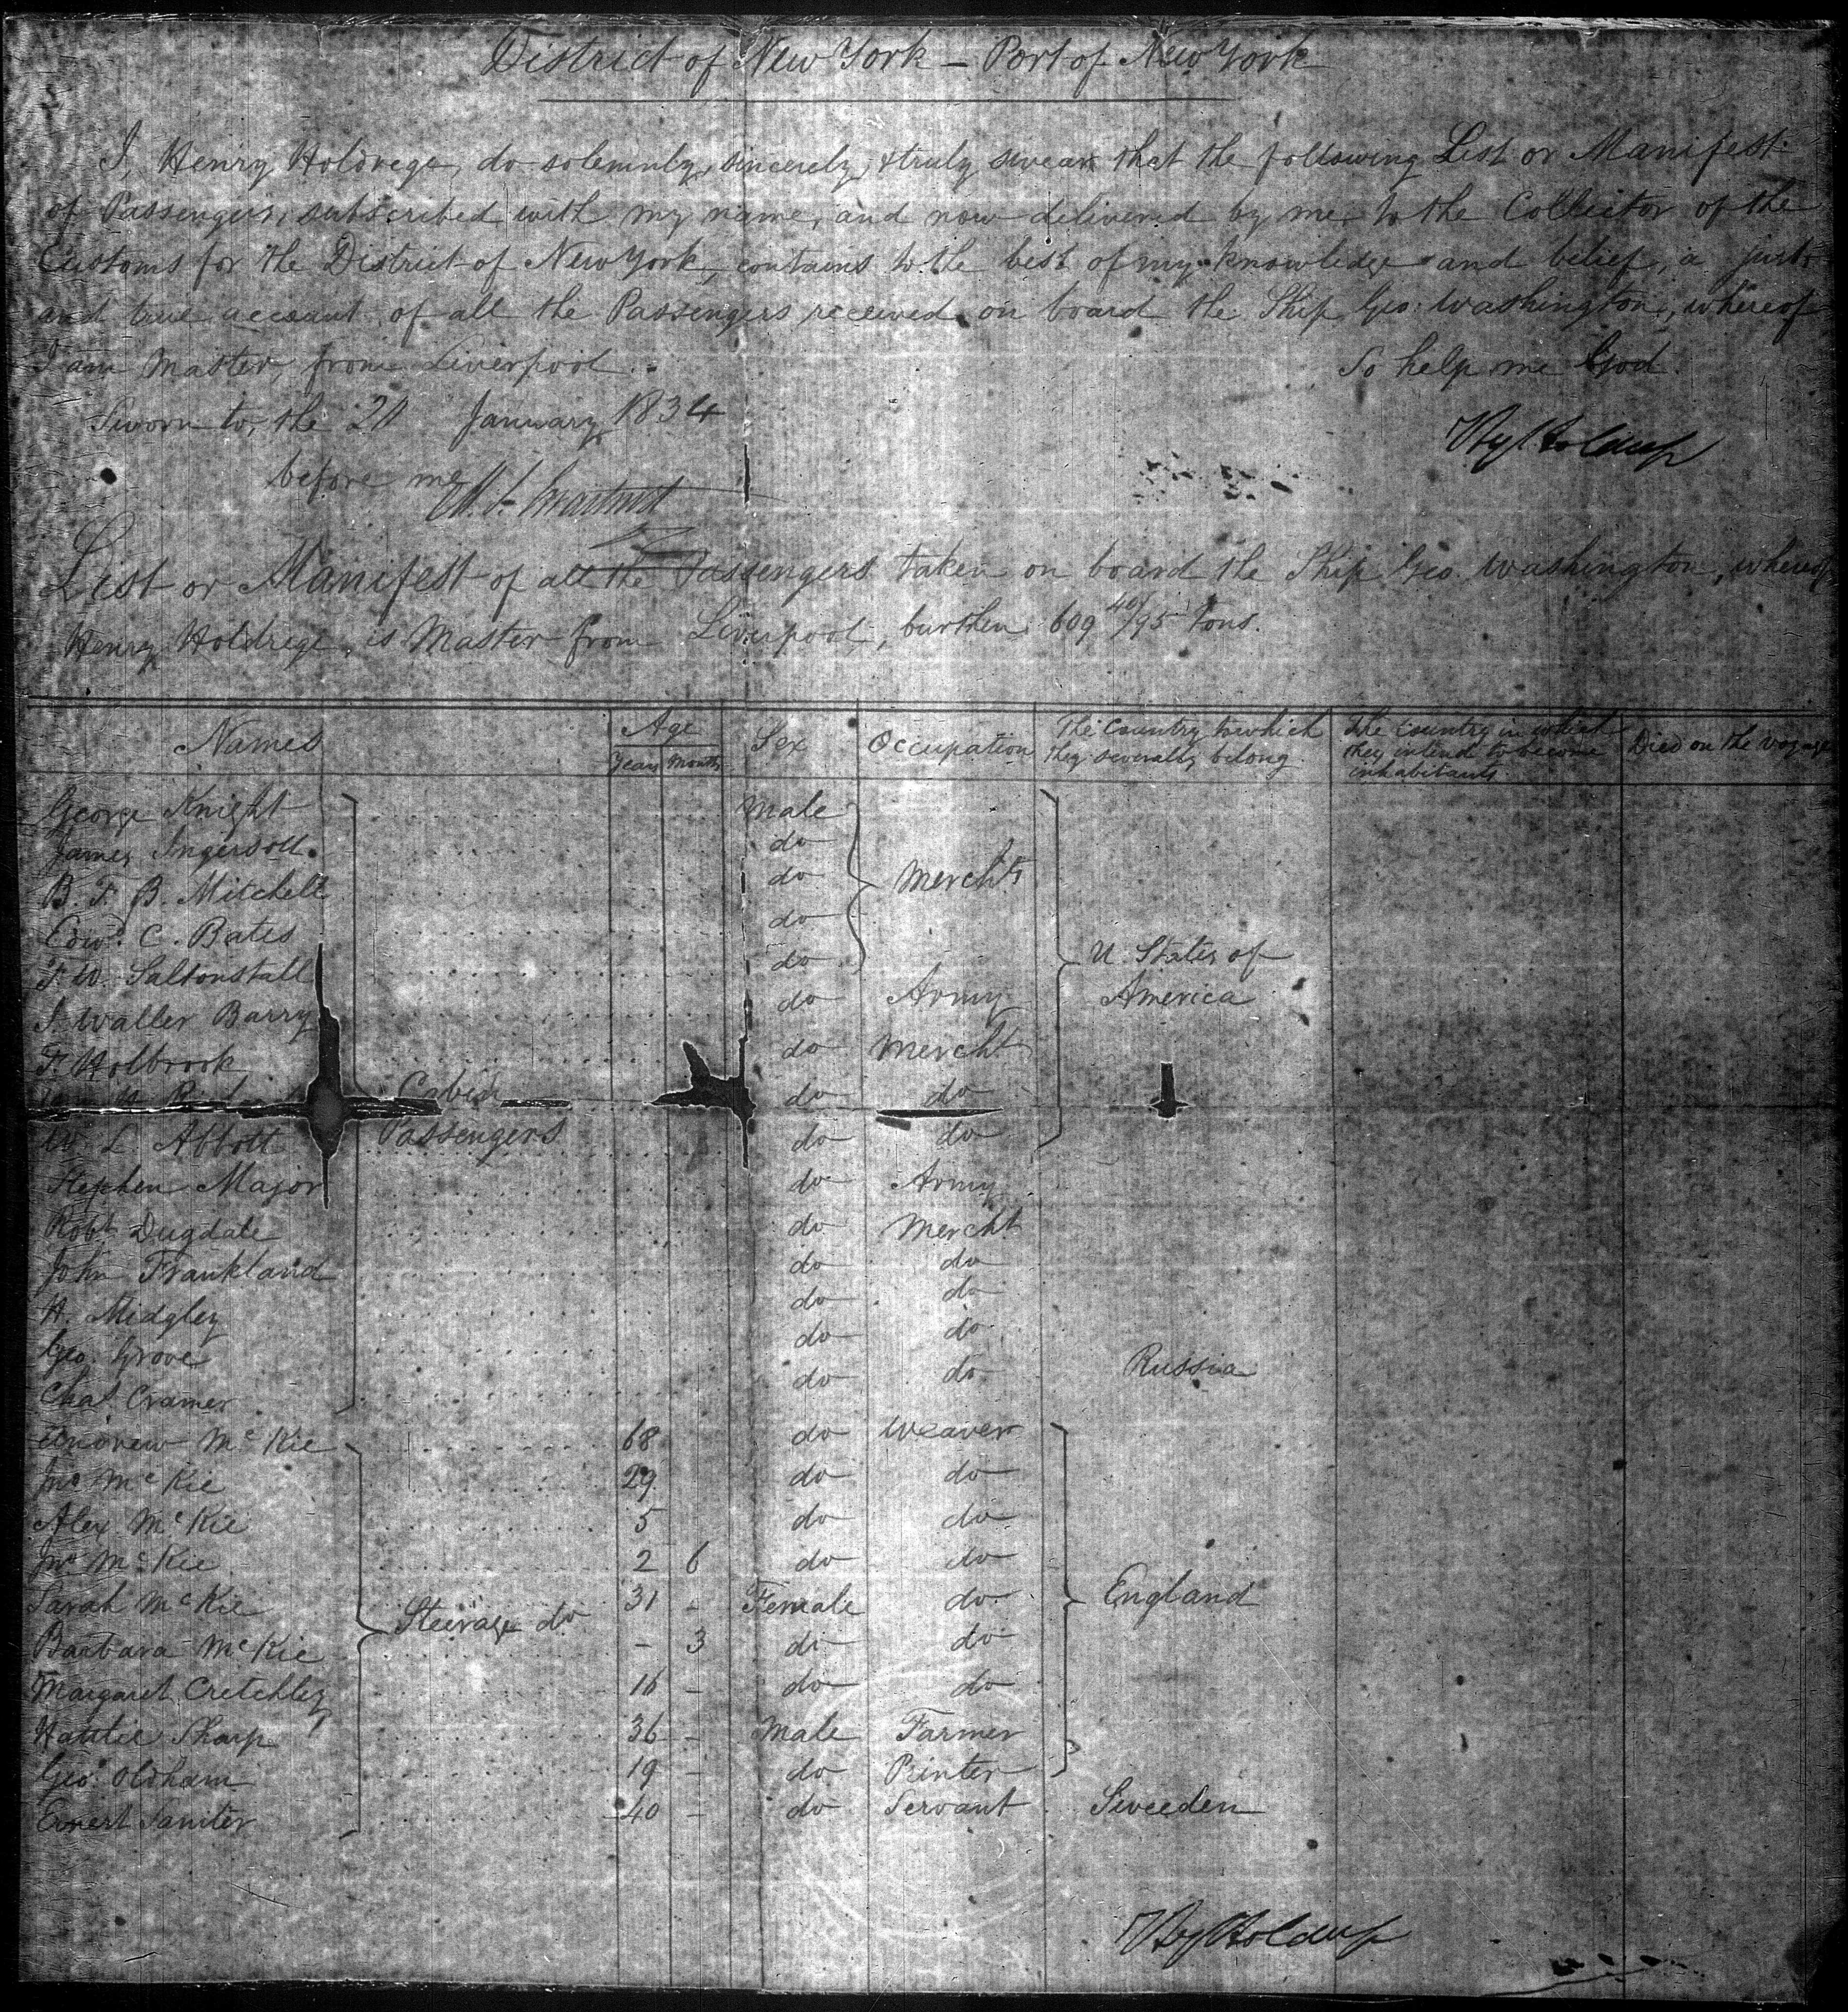 District of New York – Port of New York
I, Henry Holdrege, do solemnly, sincerely, & truly swear that the following List or Manifest
of Passengers, subscribed with my name, and now delivered by me to the Collector of the
Customs for the District of New York, contains to the best of my knowledge and belief, a just
and true account of all the Passengers received on board the Ship Geo: Washington, whereof
I am Master, from Liverpool.
So help me God.
Sworn to, the 20 January 1834
Hy Holdrege
before me
List or Manifest of all the Passengers taken on board the Ship Geo. Washington, whereof
Henry Holdrege, is Master from Liverpool, burthen 609 40/95 Tons.
Names Age Years Months Sex Occupation The Country to which they severally belong The Country in which they intend to become inhabitants Died on the voyage
George Knight Male
James Ingersoll do
B. F. B. Mitchell do Merchts
Edwd. C. Bates do
F. W. Saltonstall do U. States of
J. Waller Barry do Army America
F. Holbrook do Mercht
Cabin do do
W. L. Abbott Passengers do do
Stephen Major do Army
Robt Dugdale do Mercht
John Frankland do do
H. Midgley do do
Geo. Grove do do
Chas Cramer do do Russia
Andrew McKie 68 do Weaver
Jno McKie 29 do do
Alex McKie 5 do do
Jno McKie 2 6 do do
Sarah McKie 31 – Female do England
Barbara McKie Steerage do – 3 do do
Margaret Cretchley 16 – do do
Sharp 36 – Male Farmer
Geo: Oldham 19 – do Printer
40 – do Servant Sweeden
Hy Holdrege